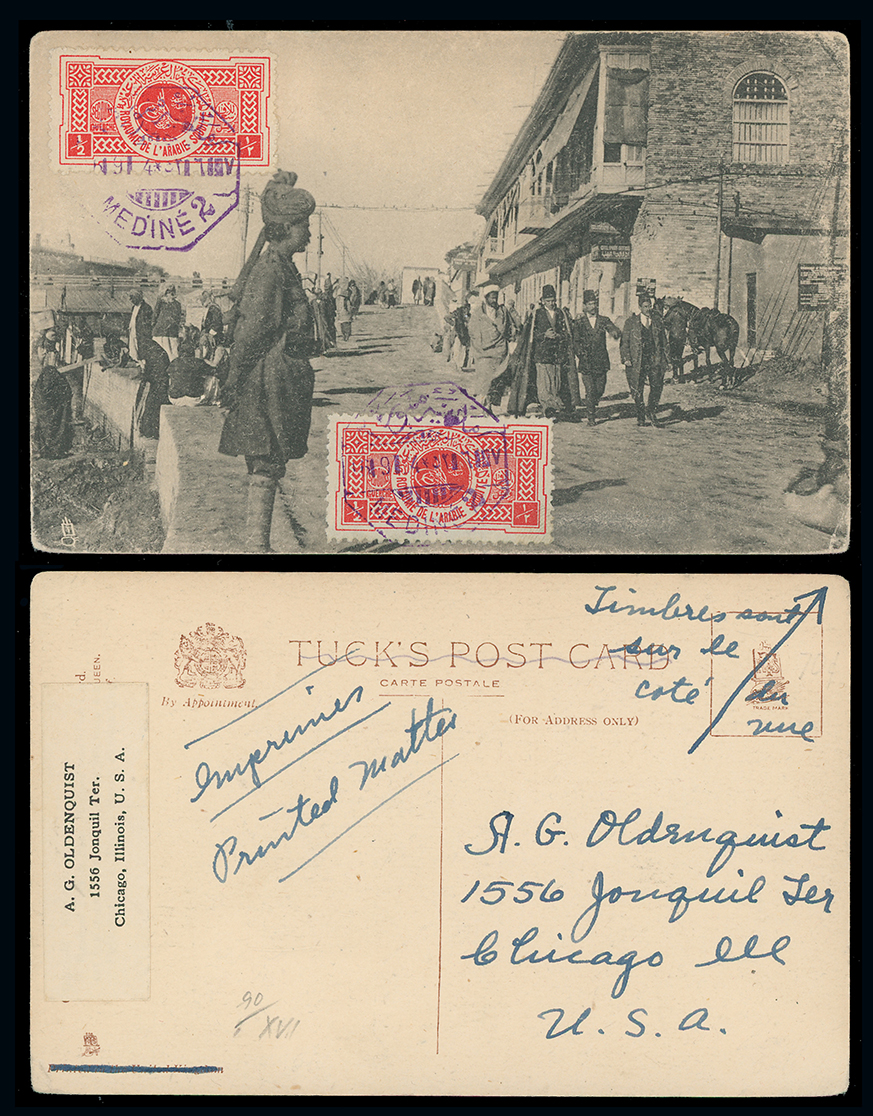 ROYAUME DE L'ARABIE SOUDITE
½
MEDINÉ 2
ROYAUME DE L'ARABIE SOUDITE
½ ½
MEDINÉ
TUCK'S POST CARD
CARTE POSTALE
By Appointment.
(FOR ADDRESS ONLY)
TRADE MARK
QUEEN.
Timbres sont
sur le
coté du
vue
Imprimés
Printed Matter
A. G. OLDENQUIST
1556 Jonquil Ter.
Chicago, Illinois, U. S. A.
A. G. Oldenquist
1556 Jonquil Ter
Chicago Ill
U. S. A.
90
XVII